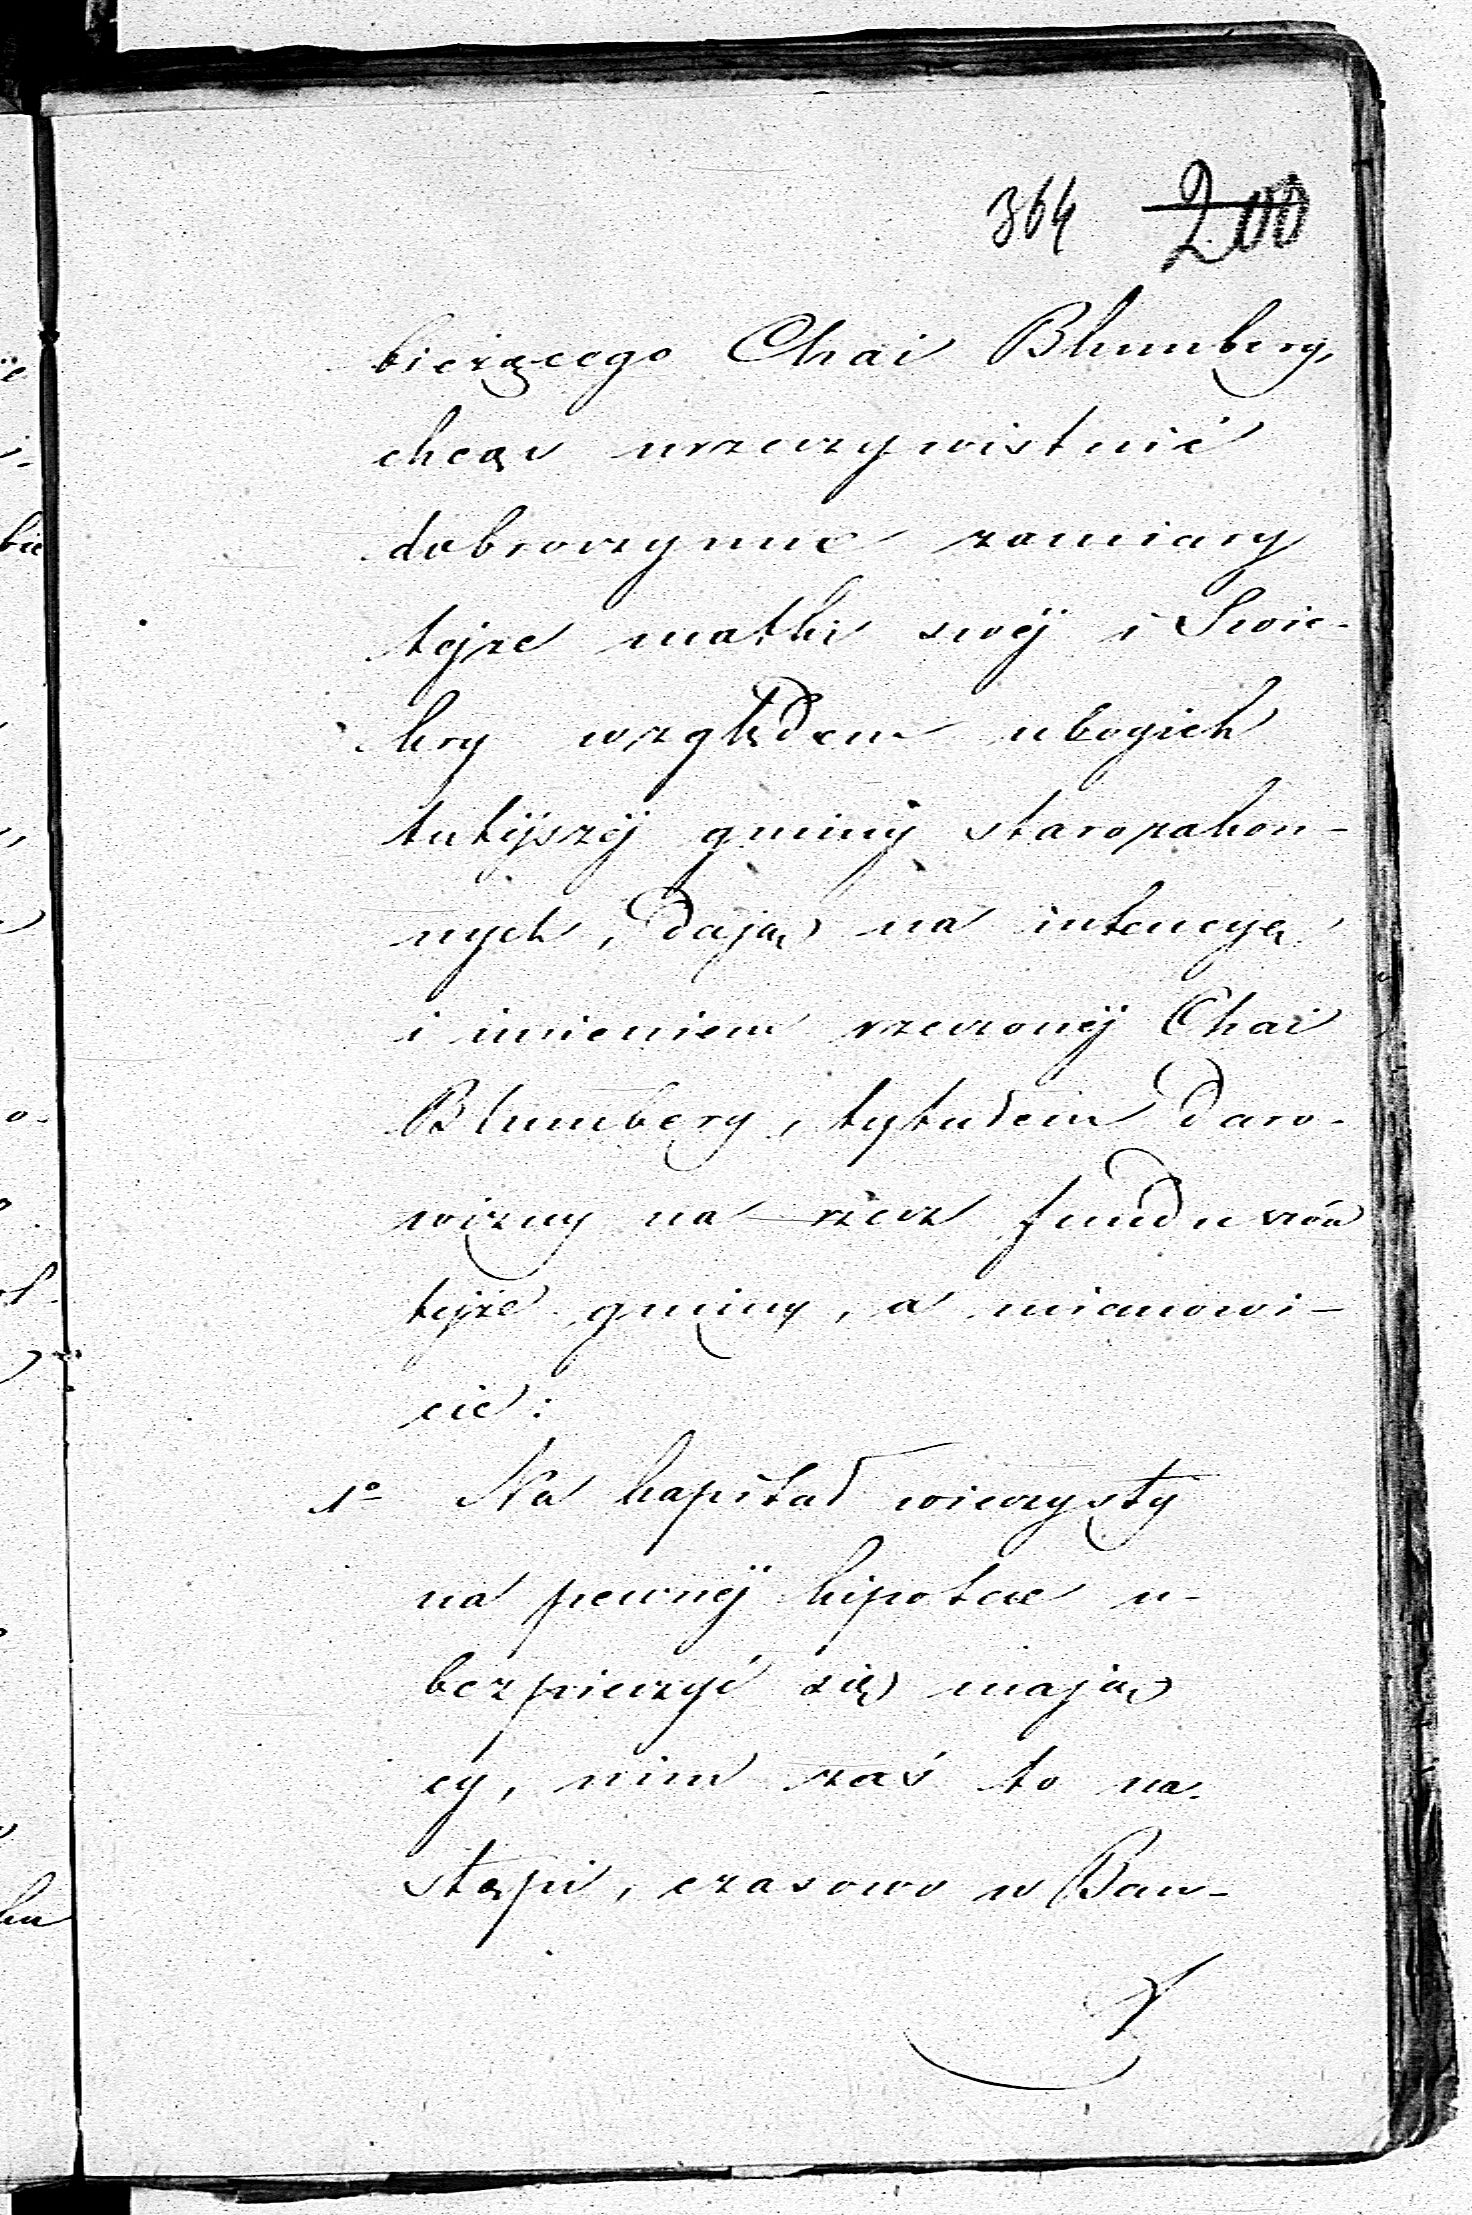 364 200
bieżącego Chai Blumberg,
chcąc urzeczywistnić
dobroczynne zamiary
tejże matki swéj i Swie-
kry względem ubogich
tutéjszéj gminy starozakon-
nych, dając na intencyę
i imieniem rzeczonéj Chai
Blumberg, tytułem daro-
wizny na rzecz funduszów
téjże gminy, a mianowi-
cie:
1o Na kapitał wieczysty
na pewnéj hipotece u-
bezpieczyć się mają-
cy, nim zaś to na-
stąpi, czasowo w Ban-